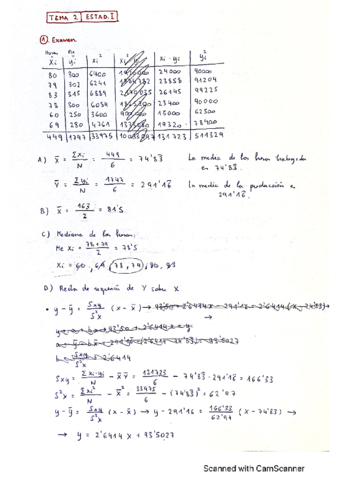 TEMA 2 | ESTAD. I
1. Examen
Horas
Xi yi xi² Xi·yi yi²
80 300 6400 24000 90000
79 302 6241 23858 91204
83 315 6889 26145 99225
78 300 6084 23400 90000
60 250 3600 15000 62500
69 280 4761 19320 78400
449 1747 33975 131723 511329
A) x̄ = Σxi / N = 449 / 6 = 74'83 La media de las horas trabajadas
es 74'83.
ȳ = Σyi / N = 1747 / 6 = 291'16 La media de la producción es
291'16
B) x̄ = 163 / 2 = 81'5
C) Mediana de las horas:
Me Xi = 78+79 / 2 = 78'5
Xi = 60, 69, 78, 79, 80, 83
D) Recta de regresión de Y sobre X
• y - ȳ = Sxy / S²x (x - x̄) →
Sxy = Σxi·yi / N - x̄ȳ = 131723 / 6 - 74'83 · 291'16 = 166'33
S²x = Σxi² / N - x̄² = 33975 / 6 - (74'83)² = 62'97
y - ȳ = Sxy / S²x (x - x̄) → y - 291'16 = 166'33 / 62'97 (x - 74'83) →
→ y = 2'6414 x + 93'5027
Scanned with CamScanner